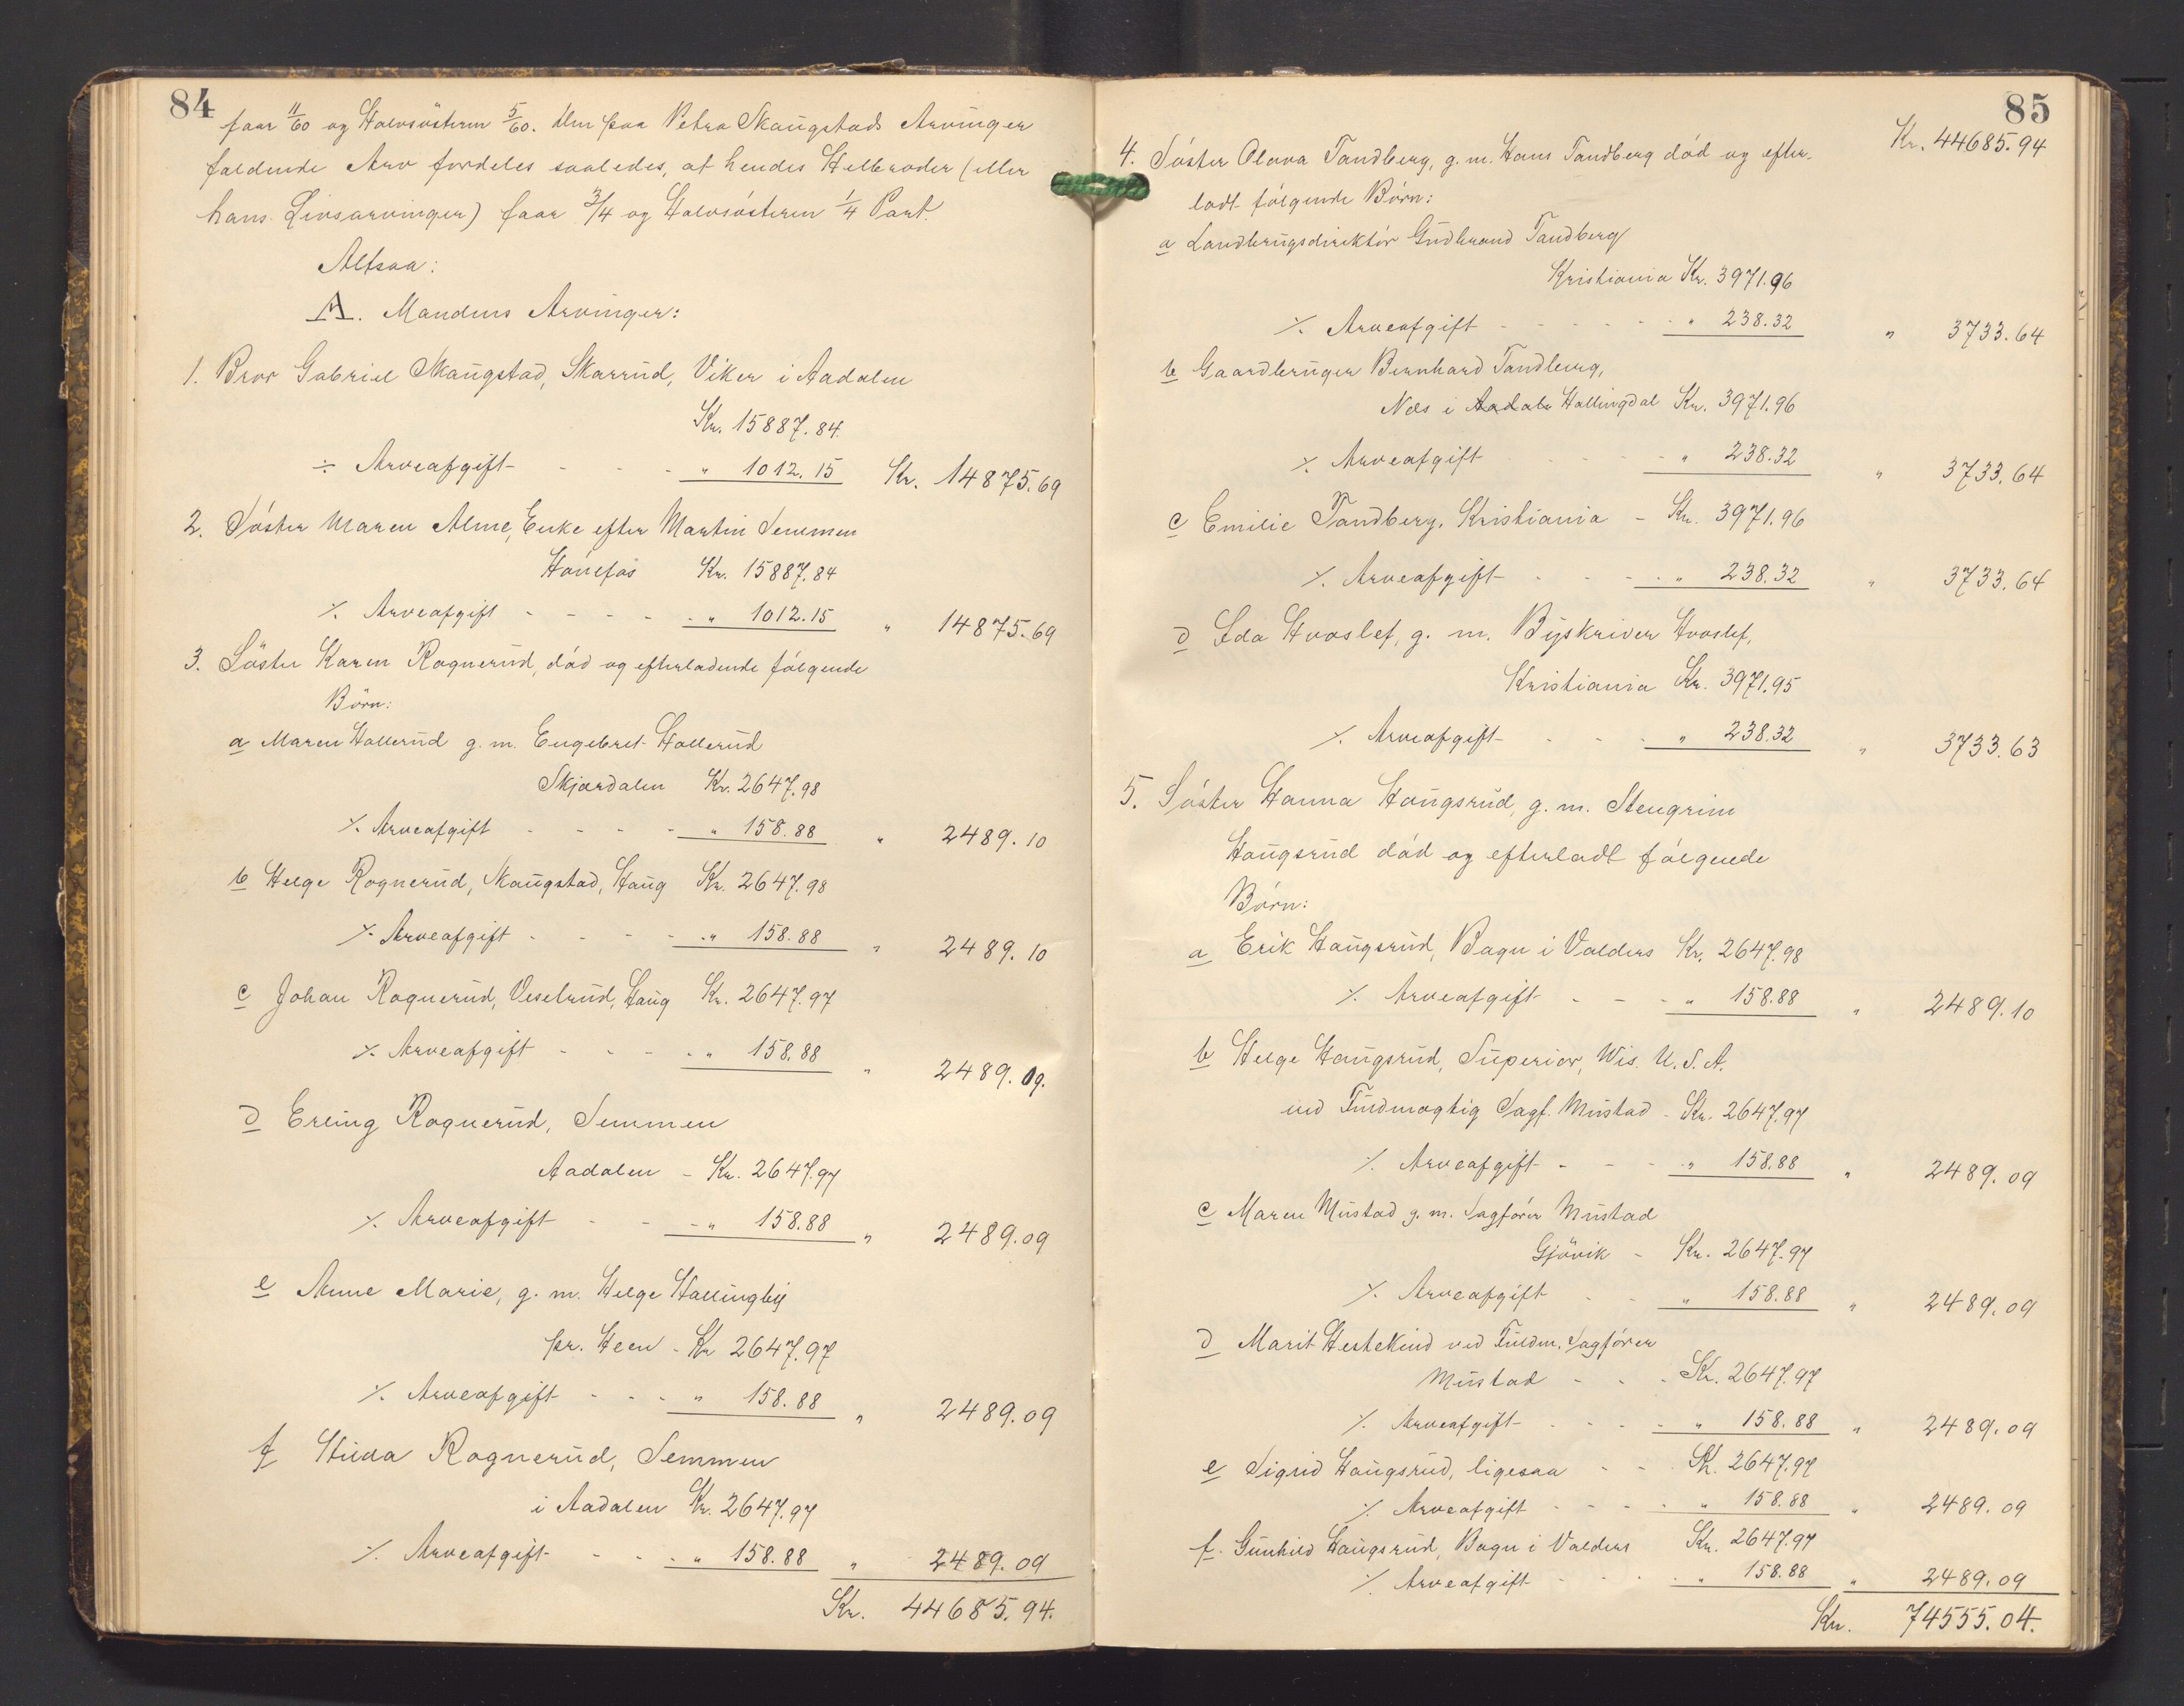 84
faar 11/60 og Halvsösteren 5/60. Den paa Petra Skaugstads Arvinger
faldende Arv fordeles saaledes, at hendes Helbroder (eller
hans Livsarvinger) faar 3/4 og Halvsösteren 1/4 Part.
Altsaa:
A. Mandens Arvinger:
1. Bror Gabriel Skaugstad, Skarrud, Viker i Aadalen
Kr. 15887.84.
÷ Arveafgift - - - " 1012.15 Kr. 14875.69
2. Söster Maren Alme, Enke efter Martin Semmen
Hönefos Kr. 15887.84
% Arveafgift - - - - " 1012.15 " 14875.69
3. Söster Karen Rognerud, död og efterladende fölgende
Börn:
a Maren Hallerud g. m. Engebret Hallerud
Skjærdalen Kr. 2647.98
% Arveafgift - - - - " 158.88 " 2489.10
b Helge Rognerud, Skaugstad, Haug Kr. 2647.98
% Arveafgift - - - - " 158.88 " 2489.10
c Johan Rognerud, Veselrud, Haug Kr. 2647.97
% Arveafgift - - - - " 158.88 " 2489.09.
d Erling Rognerud, Semmen
Aadalen - Kr. 2647.97
% Arveafgift - - - " 158.88 " 2489.09
e Anne Marie, g. m. Helge Hallingby
pr. Heen - Kr 2647.97
% Arveafgift - - - " 158.88 " 2489.09
f Hilda Rognerud, Semmen
i Aadalen Kr. 2647.97
% Arveafgift - - - " 158.88 " 2489.09
Kr. 44685.94.
85
Kr. 44685.94
4. Söster Olava Tandberg, g. m. Hans Tandberg död og efter-
ladt fölgende Börn:
a Landbrugsdirektör Gudbrand Tandberg
Kristiania Kr. 3971.96
% Arveafgift - - - - - " 238.32 " 3733.64
b Gaardbruger Bernhard Tandberg,
Nes i Aadale Hallingdal Kr. 3971.96
% Arveafgift - - - - " 238.32 " 3733.64
c Emilie Tandberg, Kristiania - Kr. 3971.96
% Arveafgift - - - - " 238.32 " 3733.64
d Ida Hvoslef, g. m. Byskriver Hvoslef,
Kristiania Kr. 3971.95
% Arveafgift - - - " 238.32 " 3733.63
5. Söster Hanna Haugsrud, g. m. Stengrim
Haugsrud död og efterladt fölgende
Börn:
a Erik Haugsrud, Bagn i Valders Kr. 2647.98
% Arveafgift - - - " 158.88 " 2489.10
b Helge Haugsrud, Superior, Wis. U. S. A.
ved Fuldmægtig Sagf. Mustad - Kr. 2647.97
% Arveafgift - - - " 158.88 " 2489.09
c Maren Mustad g. m. Sagförer Mustad
Gjövik - Kr. 2647.97
% Arveafgift - - " 158.88 " 2489.09
d Marit Hestekind ved Fuldm. Sagförer
Mustad - - - Kr. 2647.97
% Arveafgift - - - - " 158.88 " 2489.09
e Sigrid Haugsrud, ligesaa - - Kr. 2647.97
% Arveafgift - - - - " 158.88 " 2489.09
f. Gunhild Haugsrud, Bagn i Valders Kr. 2647.97
% Arveafgift - - - - " 158.88 " 2489.09
Kr. 74555.04.